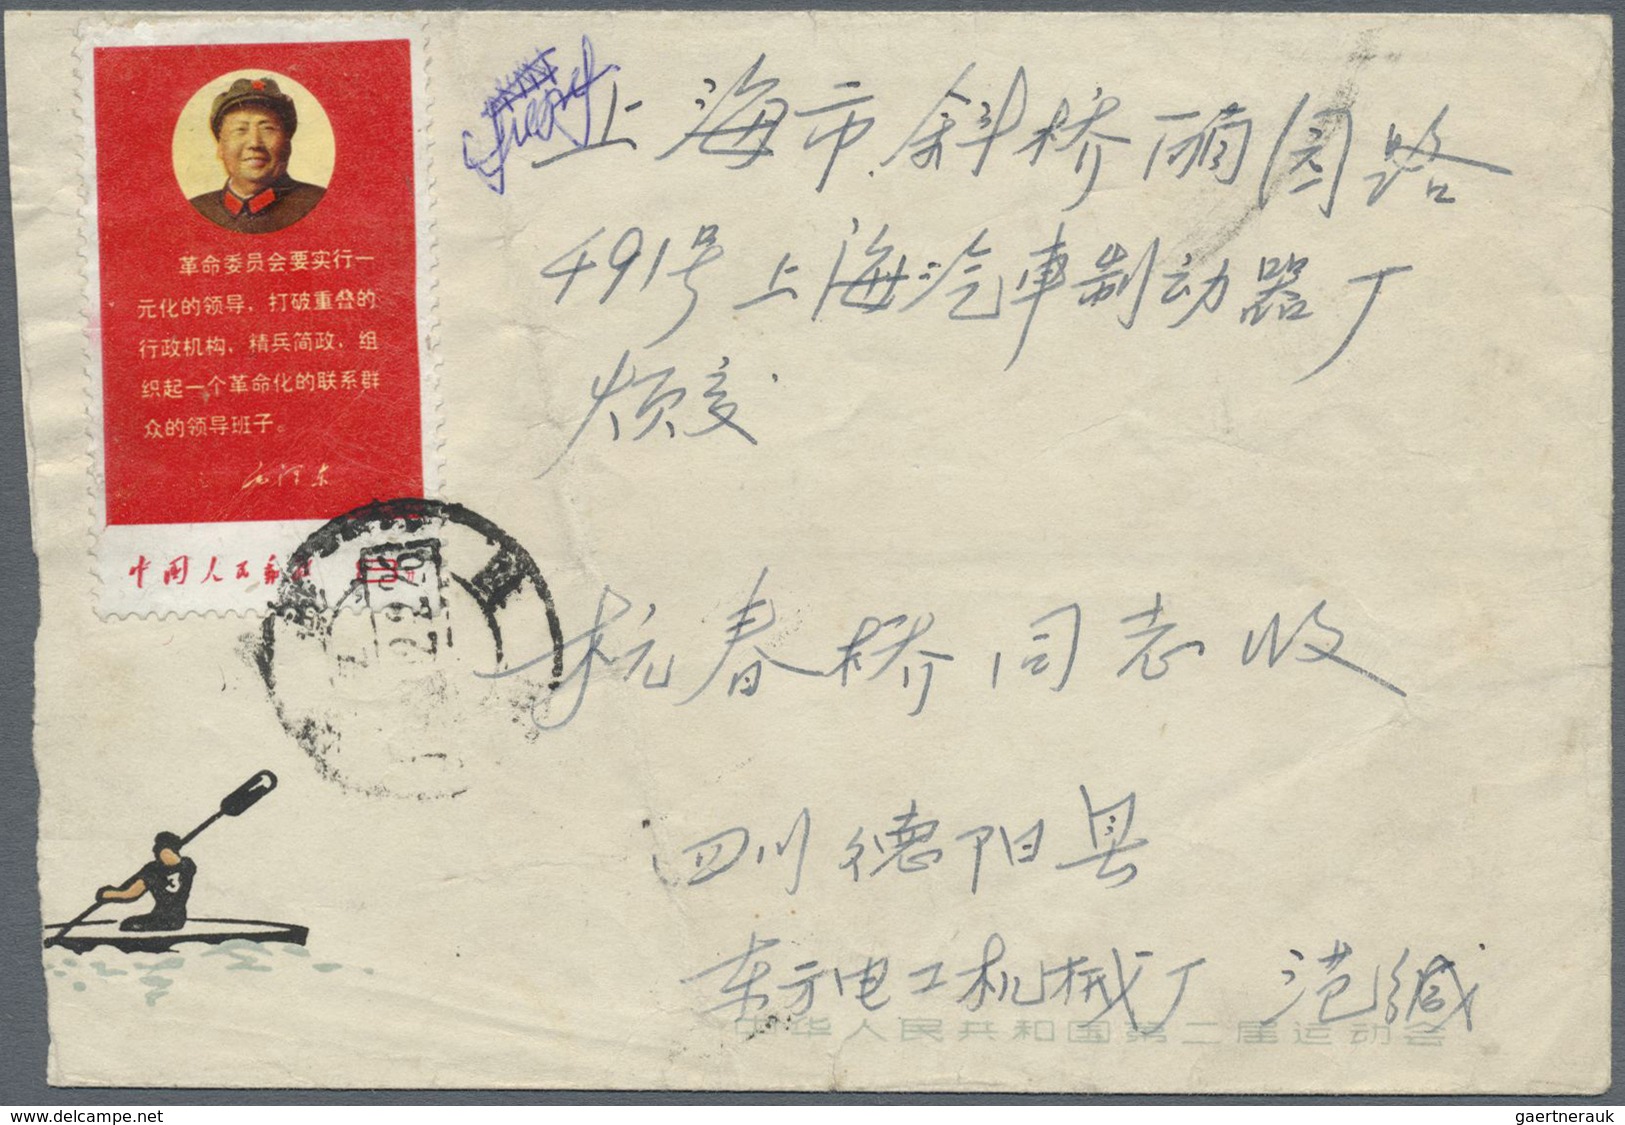 革命委员会要实行一
元化的领导，打破重叠的
行政机构，精兵简政，组
织起一个革命化的联系群
众的领导班子。
毛泽东
中国人民邮政
上海市斜桥丽园路
491号上海汽車制动器厂
烦交
杭春桥同志收
3
四川德阳县
东方电工机械厂 范缄
中华人民共和国第二届运动会
www.delcampe.net
gaertnerauk